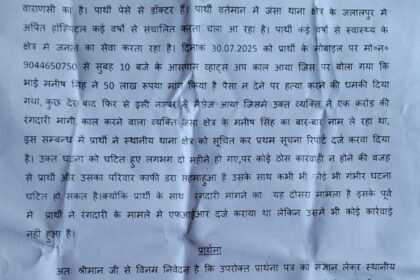 वाराणसी का है। प्रार्थी पेसे से डॉक्टर है। प्रार्थी वर्तमान में जंसा थाना क्षेत्र के जलालपुर मे
अर्पित हॉस्पिटल कई वर्षो से संचालित करता चला आ रहा है। प्रार्थी कई वर्षो से स्वास्थय के
क्षेत्र मे जनता का सेवा करता रहा है। दिनांक 30.07.2025 को प्रार्थी के मोबाइल पर मो०न०
9044650750 से सुबह 10 बजे के आसपास व्हाट्स अप काल आया जिस पर बोला गया कि
भाई मनीष सिंह ने 50 लाख रूपया मांग किया है पैसा न देने पर हत्या करने की धमकी दिया
गया, कुछ देर बाद फिर से इसी नम्बर से मैसेज आया जिसमे उक्त व्यक्ति ने एक करोड़ की
रंगदारी मांगी, काल करने वाला व्यक्ति जंसा क्षेत्र के मनीष सिंह का बार-बार नाम ले रहा था,
इस सम्बन्ध मे प्रार्थी ने स्थानीय थाना क्षेत्र को सूचित कर प्रथम सूचना रिपोर्ट दर्ज करवा दिया
है। उक्त घटना को घटित हुए लगभग दो महीने हो गए,पर कोई ठोस कारवाही न होने की वजह
से प्रार्थी और उसका परिवार काफी डरा सहमा हुआ है उसके साथ कभी भी कोई भी गंभीर घटना
घटित हो सकत है।क्योंकि प्रार्थी के साथ रंगदारी मांगने का यह दूसरा मामला है इसके पूर्व
मे प्रार्थी ने रंगदारी के मामले मे एफआईआर दर्ज कराया था लेकिन उसमे भी कोई कार्रवाई
नही हुआ है।
प्रार्थना
अतः श्रीमान जी से विनम्र निवेदन है कि उपरोक्त प्रार्थना पत्र का संज्ञान लेकर स्थानीय